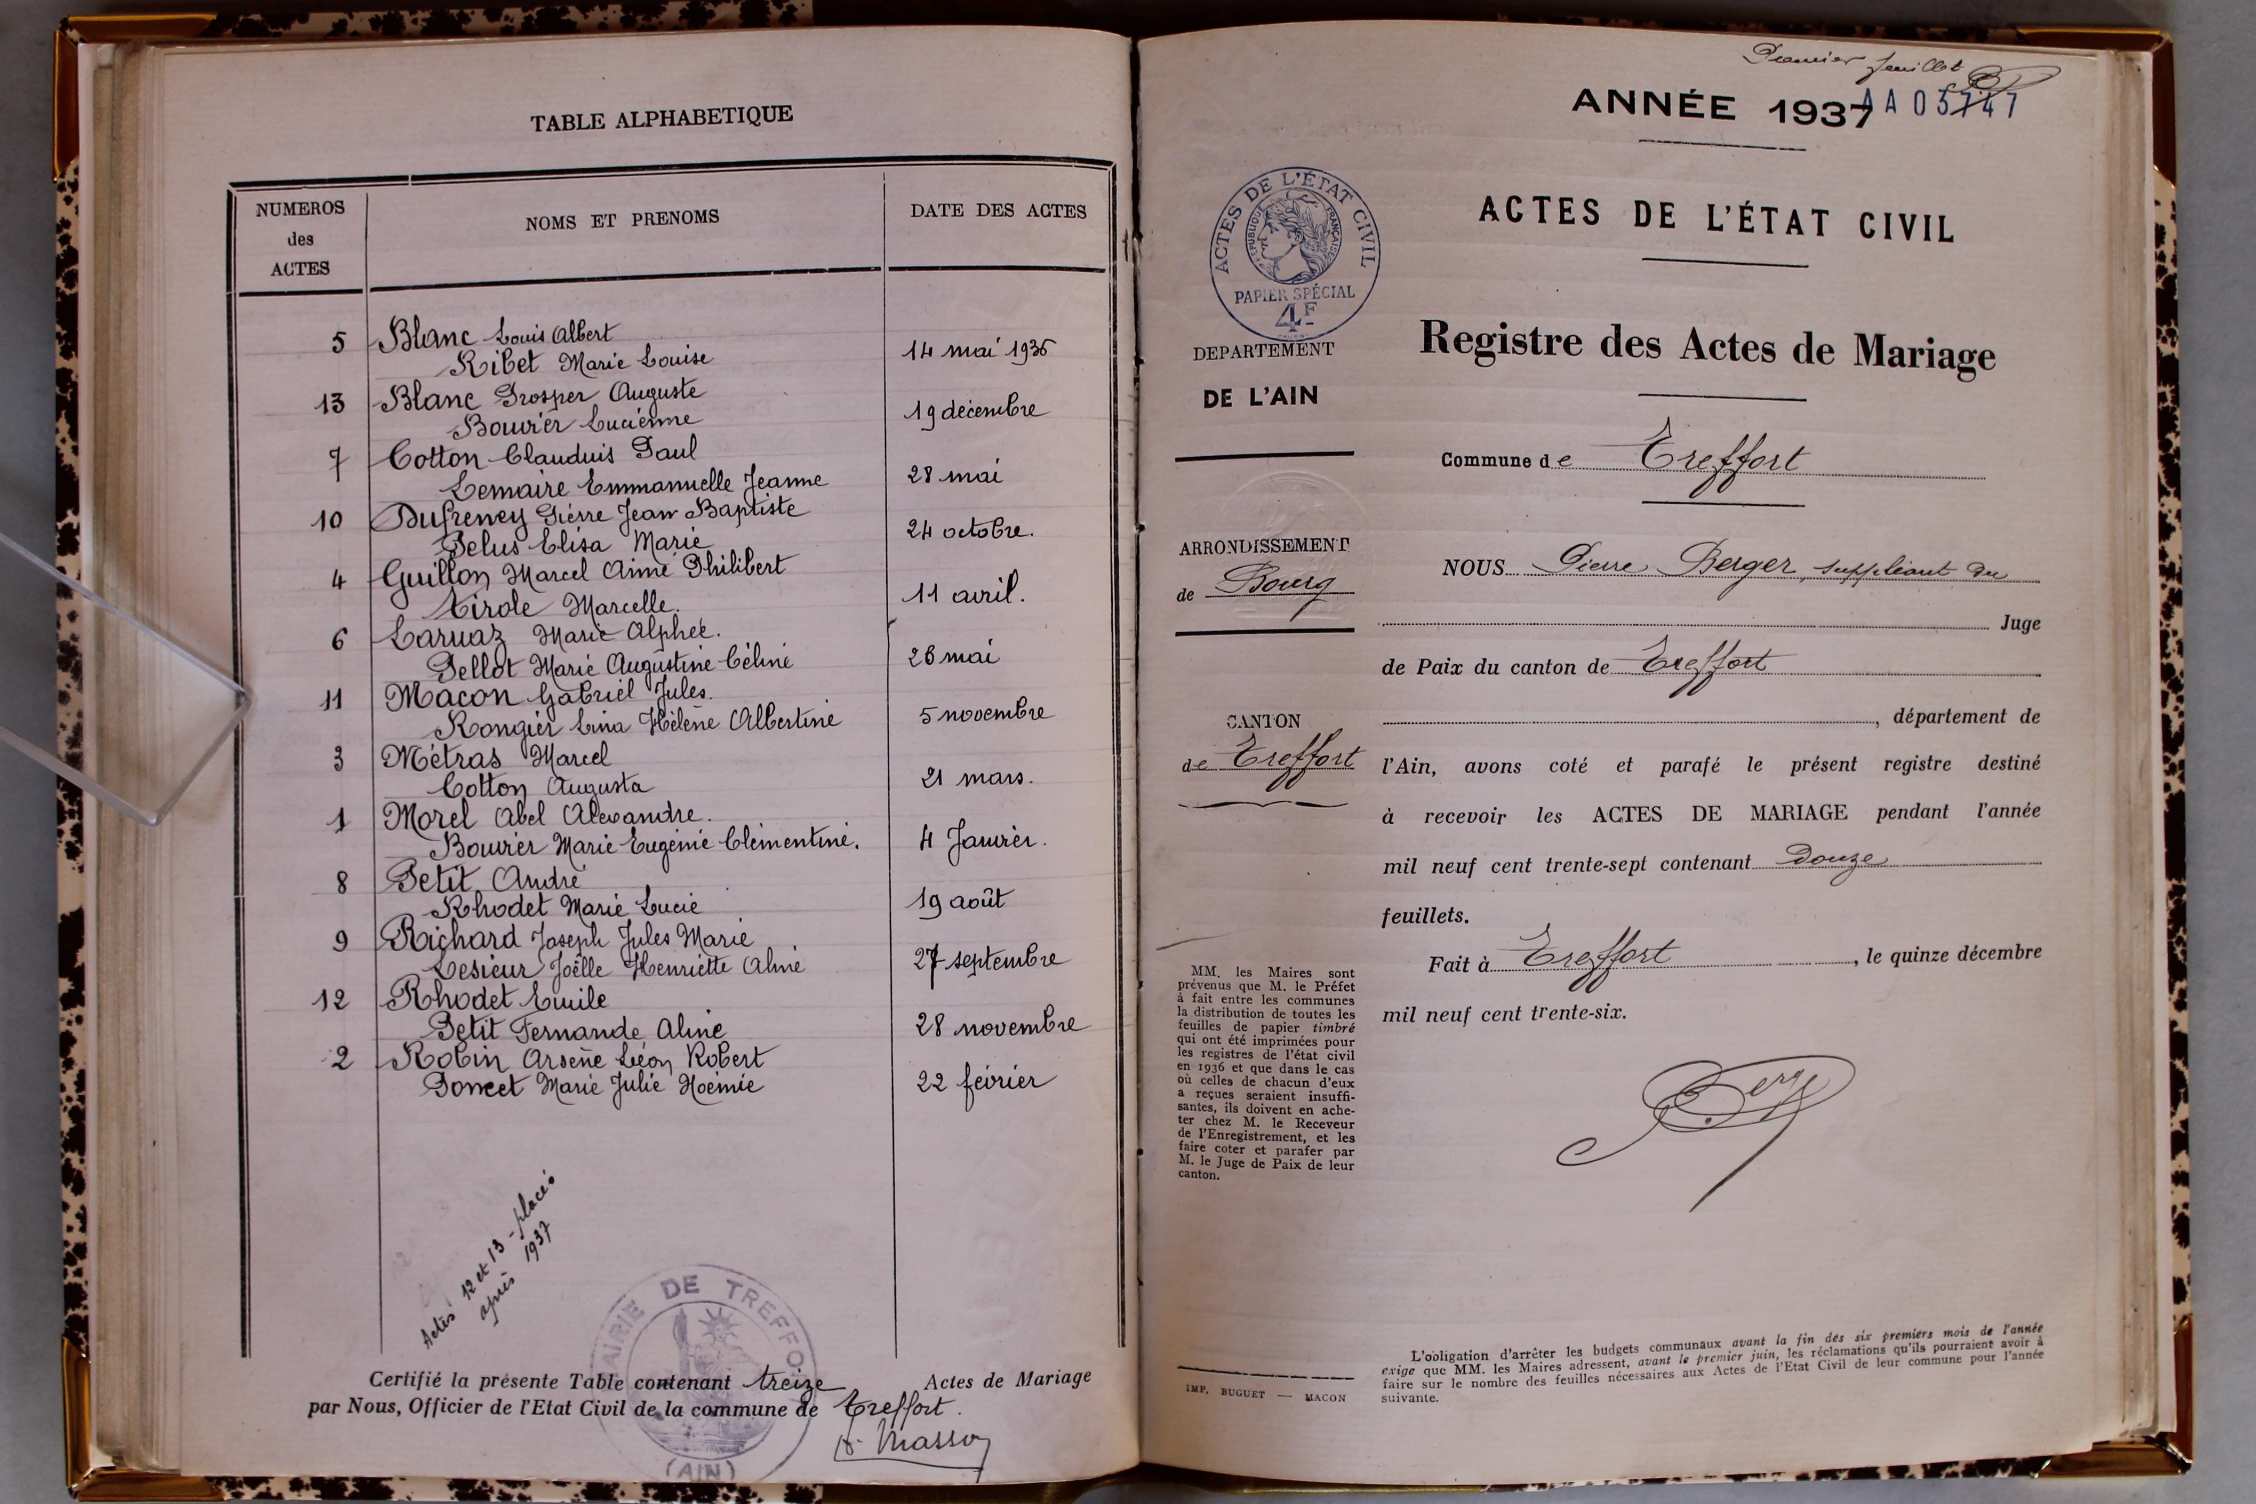 TABLE ALPHABETIQUE
NUMEROS
des
ACTES
NOMS ET PRENOMS
DATE DES ACTES
5 Blanc Louis Albert
Ribet Marie Louise 14 mai 1936
13 Blanc Prosper Auguste
Bouvier Lucienne 19 décembre
7 Cotton Claudius Paul
Lemaire Emmanuelle Jeanne 28 mai
10 Dufreney Pierre Jean Baptiste
Pelus Elisa Marie 24 octobre.
4 Guillon Marcel Aimé Philibert
Tirole Marcelle. 11 avril.
6 Laruaz Marie Alphée.
Pellot Marie Augustine Céline 26 mai
11 Macon Gabriel Jules.
Rongier Lina Hélène Albertine 5 novembre
3 Métras Marcel
Cotton Augusta 21 mars.
1 Morel Abel Alexandre.
Bouvier Marie Eugénie Clémentine. 4 Janvier.
8 Petit André
Rhodet Marie Lucie 19 août
9 Richard Joseph Jules Marie
Lesieur Joëlle Henriette Aline 27 septembre
12 Rhodet Emile
Petit Fernande Aline 28 novembre
2 Robin Arsène Léon Robert
Poncet Marie Julie Noémie 22 février
Actes 12 et 13 - placés
après 1937
MAIRIE DE TREFFORT
(AIN)
Certifié la présente Table contenant treize Actes de Mariage
par Nous, Officier de l'Etat Civil de la commune de Treffort.
Masson
Premier feuillet
ANNÉE 1937
AA 03747
ACTES DE L'ÉTAT CIVIL
ACTES DE L'ÉTAT CIVIL
RÉPUBLIQUE FRANÇAISE
PAPIER SPÉCIAL
4F
DEPARTEMENT
DE L'AIN
Registre des Actes de Mariage
Commune de Treffort
ARRONDISSEMENT
de Bourg
CANTON
de Treffort
NOUS Pierre Berger, suppléant du
Juge
de Paix du canton de Treffort
, département de
l'Ain, avons coté et parafé le présent registre destiné
à recevoir les ACTES DE MARIAGE pendant l'année
mil neuf cent trente-sept contenant Douze
feuillets.
Fait à Treffort, le quinze décembre
mil neuf cent trente-six.
Berger
MM. les Maires sont
prévenus que M. le Préfet
à fait entre les communes
la distribution de toutes les
feuilles de papier timbré
qui ont été imprimées pour
les registres de l'état civil
en 1936 et que dans le cas
où celles de chacun d'eux
a reçues seraient insuffi-
santes, ils doivent en ache-
ter chez M. le Receveur
de l'Enregistrement, et les
faire coter et parafer par
M. le Juge de Paix de leur
canton.
IMP. BUGUET — MACON
L'obligation d'arrêter les budgets communaux avant la fin des six premiers mois de l'année
exige que MM. les Maires adressent, avant le premier juin, les réclamations qu'ils pourraient avoir à
faire sur le nombre des feuilles nécessaires aux Actes de l'Etat Civil de leur commune pour l'année
suivante.